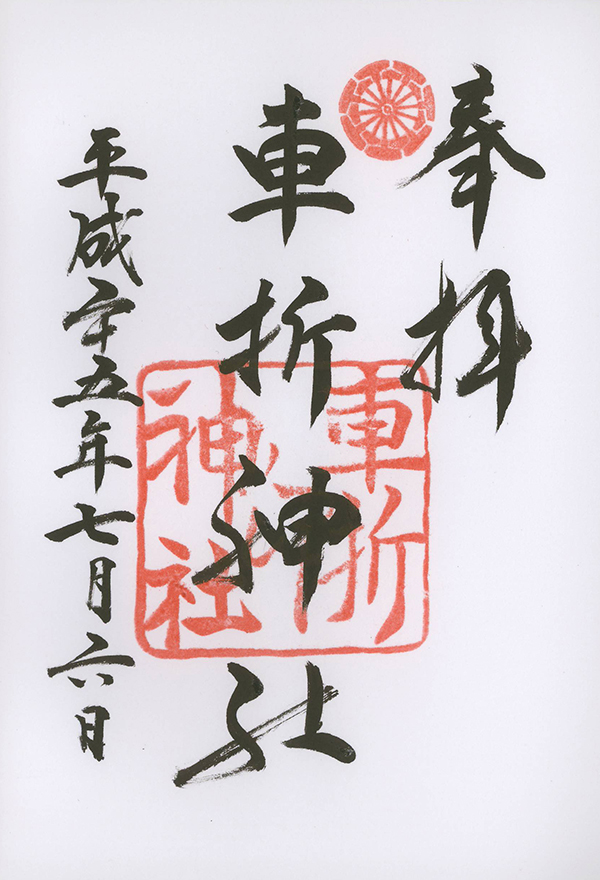 奉拝
車折神社
車折神社
平成二十五年七月六日